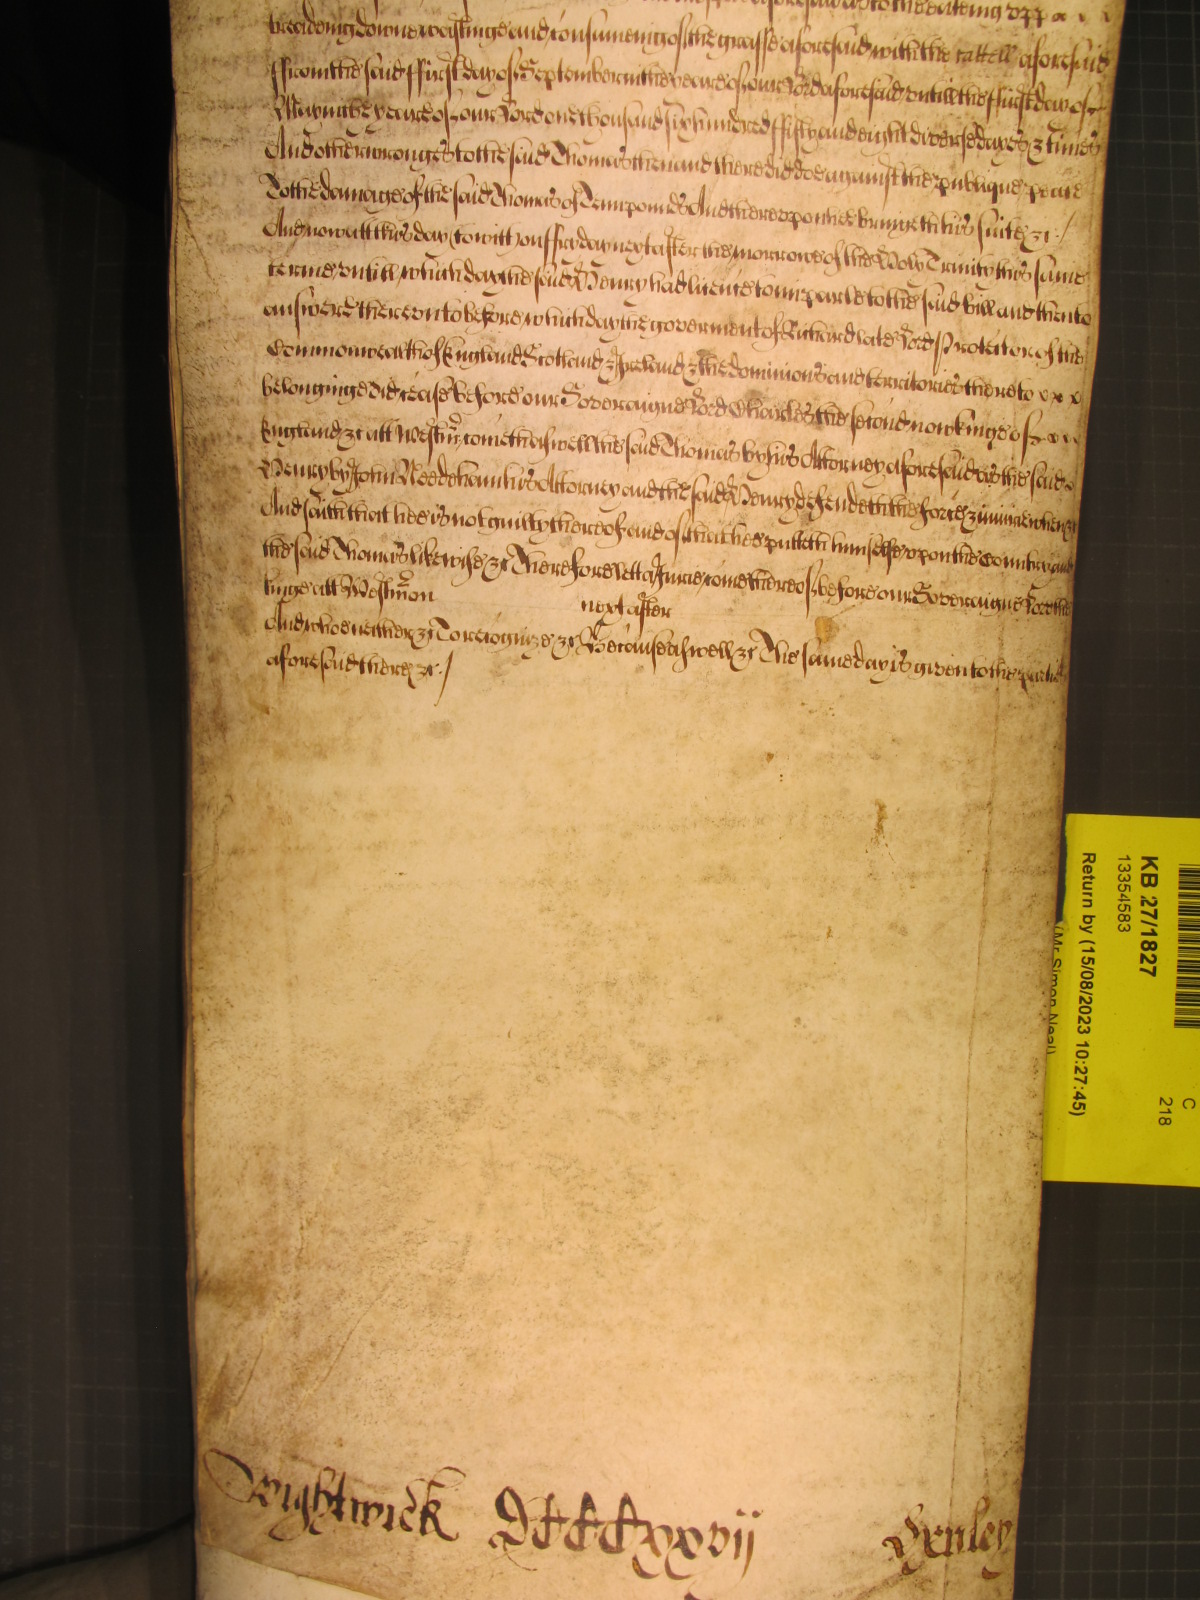 aforesaid as to the eateing upp
treadeing downe wastinge and consumeing of the grasse aforesaid with the cattell aforesaid
ffrom the said ffirst day of September in the yeare of our Lord aforesaid untill the ffirst day of
May in the yeare of our Lord one thousand six hundred ffifty and eight diverse dayes & times
And other wronges to the said Thomas then and there did doe against the publique peace
To the damage of the said Thomas of Tenn pounds And thereupon hee bringeth his suite &c ./
And now att this day (to witt) on ffryday next after the morrowe of the Holy Trinity this same
terme untill which day the said Henry had licence to imparle to the said bill and then to
answere thereunto before which day the goverment of Richard late Lord Protector of the
Commonwealth of England Scotland & Ireland & the dominions and territories thereto x x x
belonginge did cease before our Soveraigne Lord Charles the second now kinge of
England &c att Westm̃ cometh aswell the said Thomas by his Attorney aforesaid as the said
Henry by John Needeham his Attorney and the said Henry defendeth the force & iniurie when &c
And saith that hee is not guilty thereof and of that hee putteth himselfe upon the Country and
the said Thomas likewise &c Therefore lett a Jurie come thereof before our Soveraigne Lord the
kinge att Westm̃ on next after
And whoe neither &c To recognize &c Because aswell &c The same day is given to the parties
aforesaid there &c ./
Wightwick DCCCCxxvij Yxnley
KB 27/1827
13354583
Return by (15/08/2023 10:27:45)
C
218
(Mr Simon Neal)